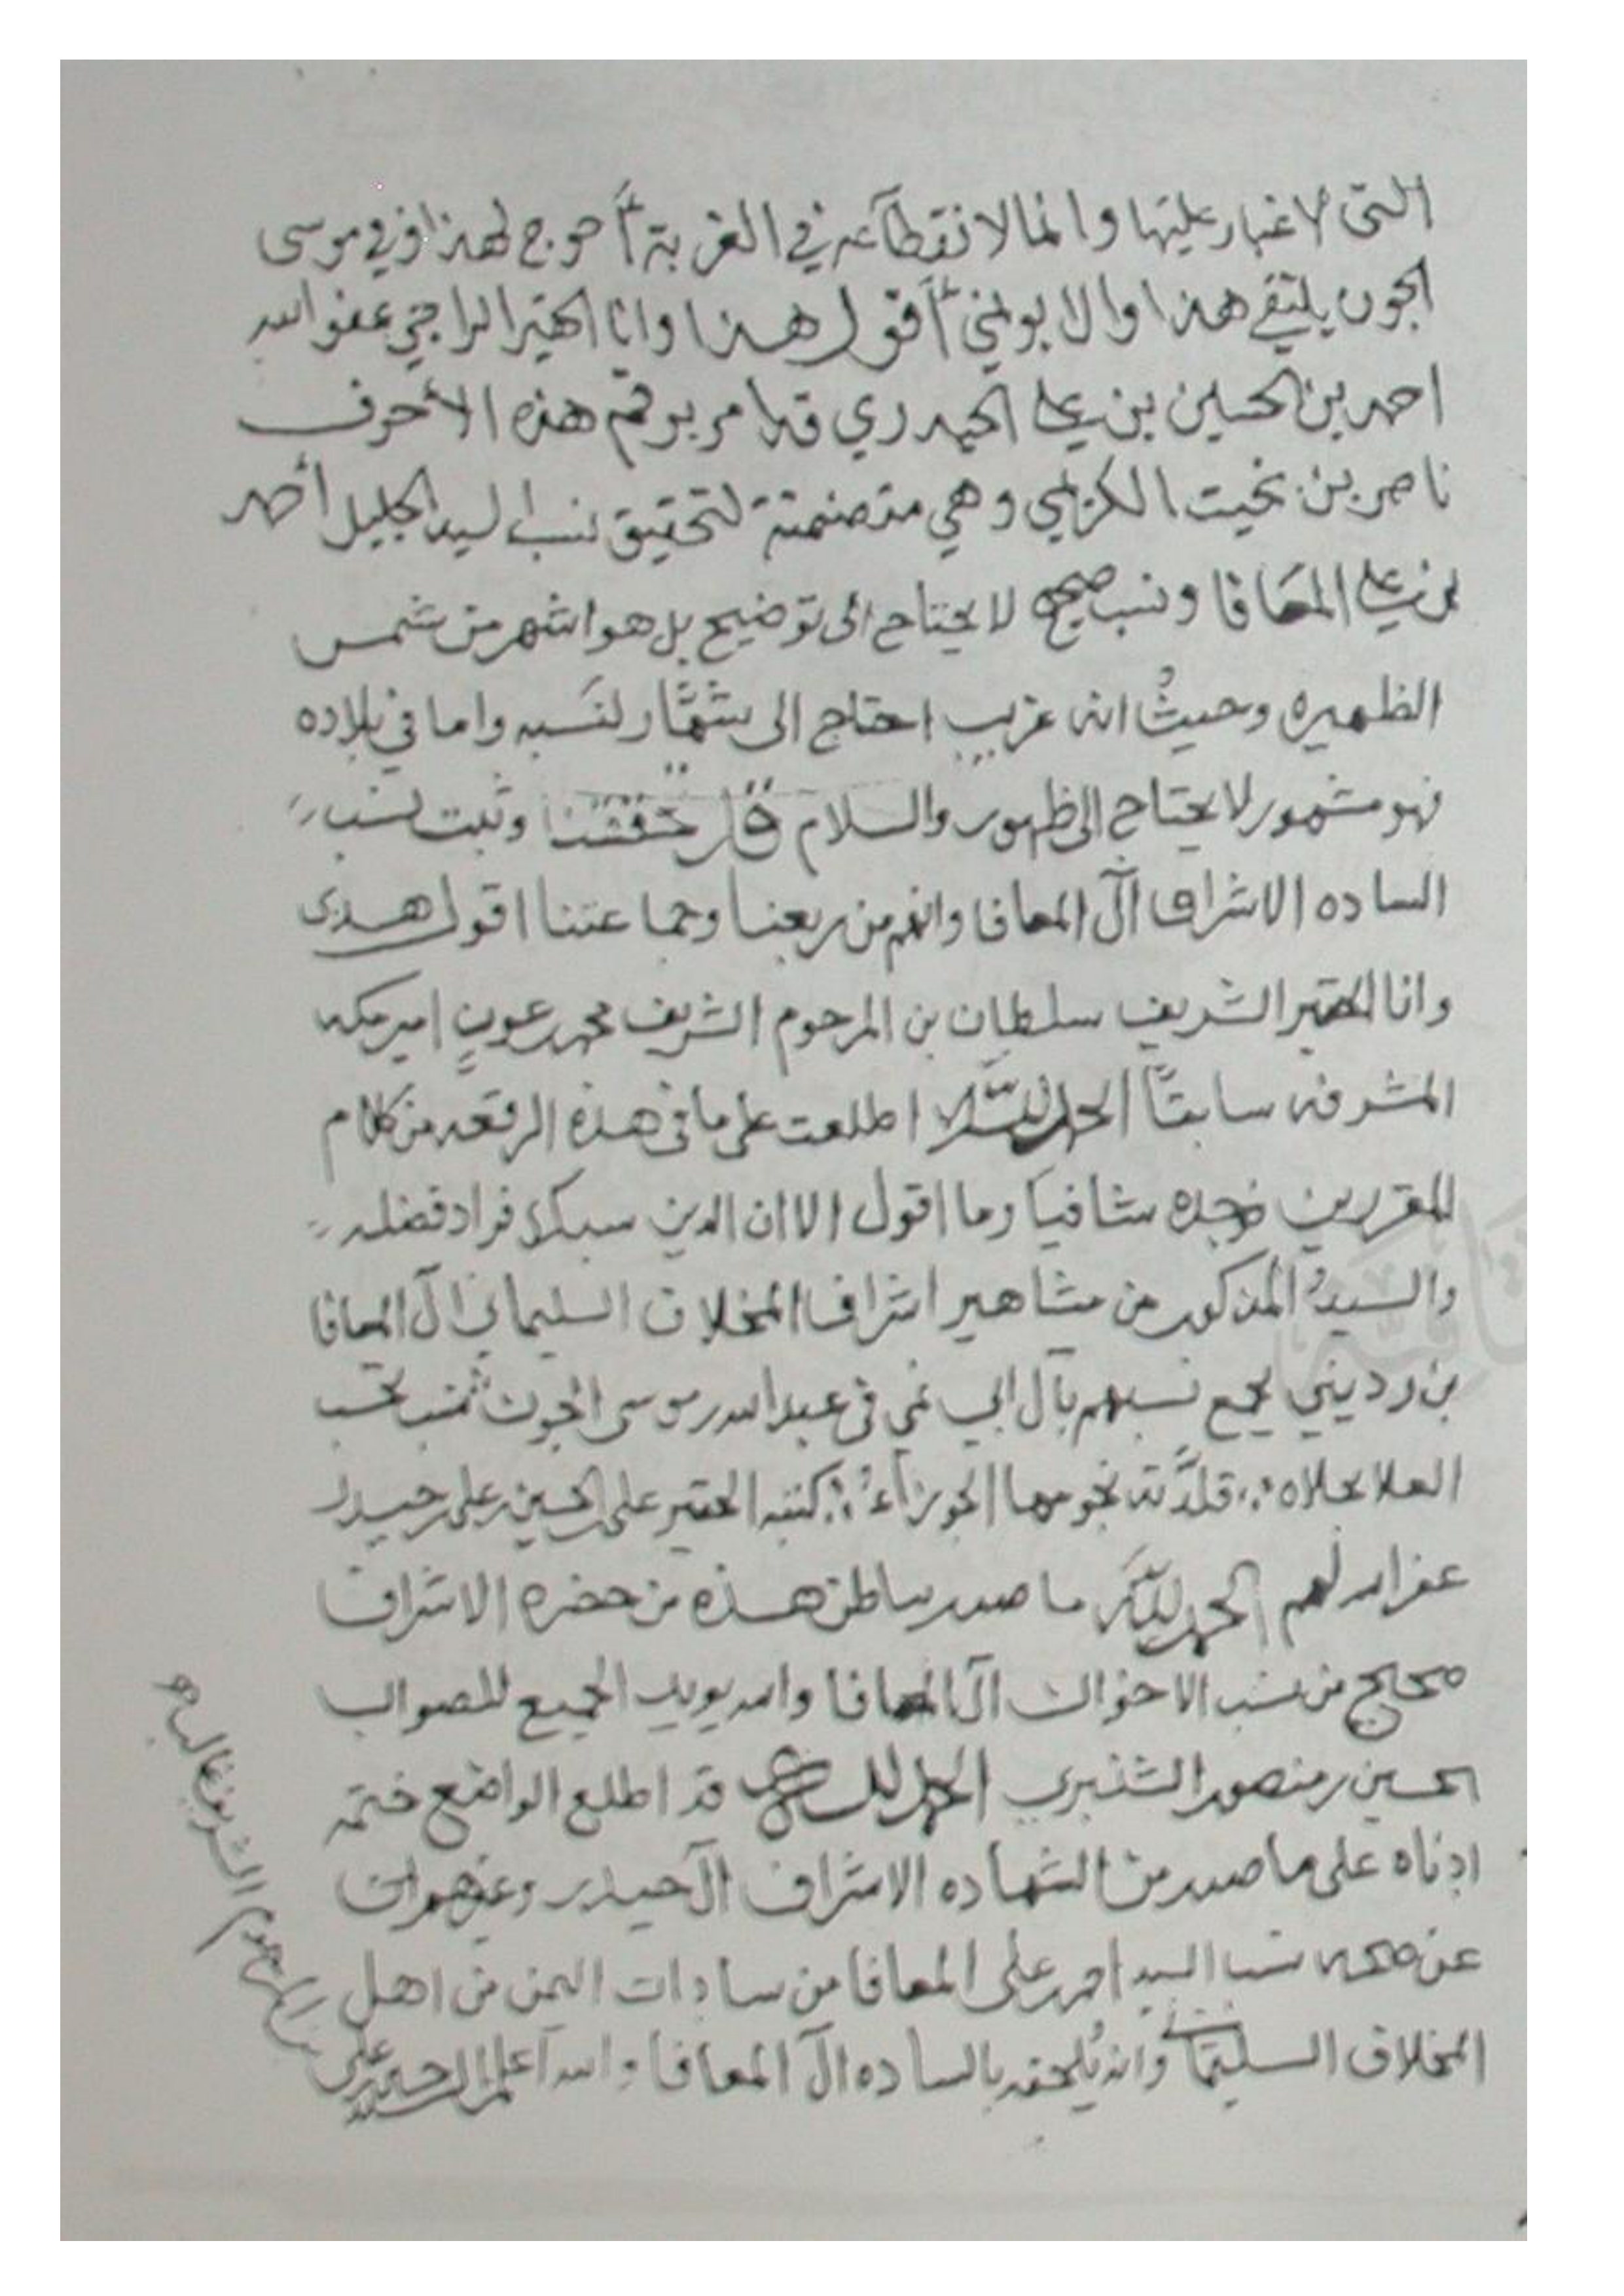 التي لا غبار عليها وانما لانقطاعه في الغربة أحوج لهذا وفي موسى
الجون يلتقي هذا والا بونمي أقول هذا وانا الحقير الراجي عفو الله
احمد بن الحسين بن علي الحيدري قد امر برقم هذه الأحرف
ناصر بن بخيت الكريمي وهي متضمنة لتحقيق نسب السيد الجليل أحمد
بن علي المعافا ونسب صحيح لا يحتاج الى توضيح بل هو اشهر من شمس
الظهيره وحيث انه غريب احتاج الى شهار لنسبه واما في بلاده
فهو مشهور لا يحتاج الى ظهور والسلام قد حققنا وثبت نسب
الساده الاشراف آل المعافا وانهم من ربعنا وجماعتنا اقول هذى
وانا الحقير الشريف سلطان بن المرحوم الشريف محمد عون امير مكه
المشرفه سابقاً الحمد لله اطلعت على ما في هذه الرقعه من كلام
المقررين فوجده شافياً وما اقول الا ان الدين
والسيد المذكور من مشاهير اشراف المخلاف السليماني آل المعافا
بن رديني يجمع نسبهم بآل ابي نمي في عبد الله بن موسى الجون نسب تحسب
العلا بحلاه قلدته نجومها الجوزاء كتبه الحقير علي الحسين علي حيدر
غفر الله لهم الحمد لله ما صدر بباطن هذه من حضرة الاشراف
صحيح من نسب الاخوان آل المعافا والله يويد الجميع للصواب
الحسين بن منصور الشنبري الحمد لله قد اطلع الواضع ختمه
ادناه على ما صدر من الشهاده الاشراف آل حيدر وغيرهم
عن صحة نسب السيد احمد علي المعافا من سادات اليمن من اهل
المخلاف السليماني وانه يلحق بالساده آل المعافا والله اعلم
المرحوم الشريف غالب